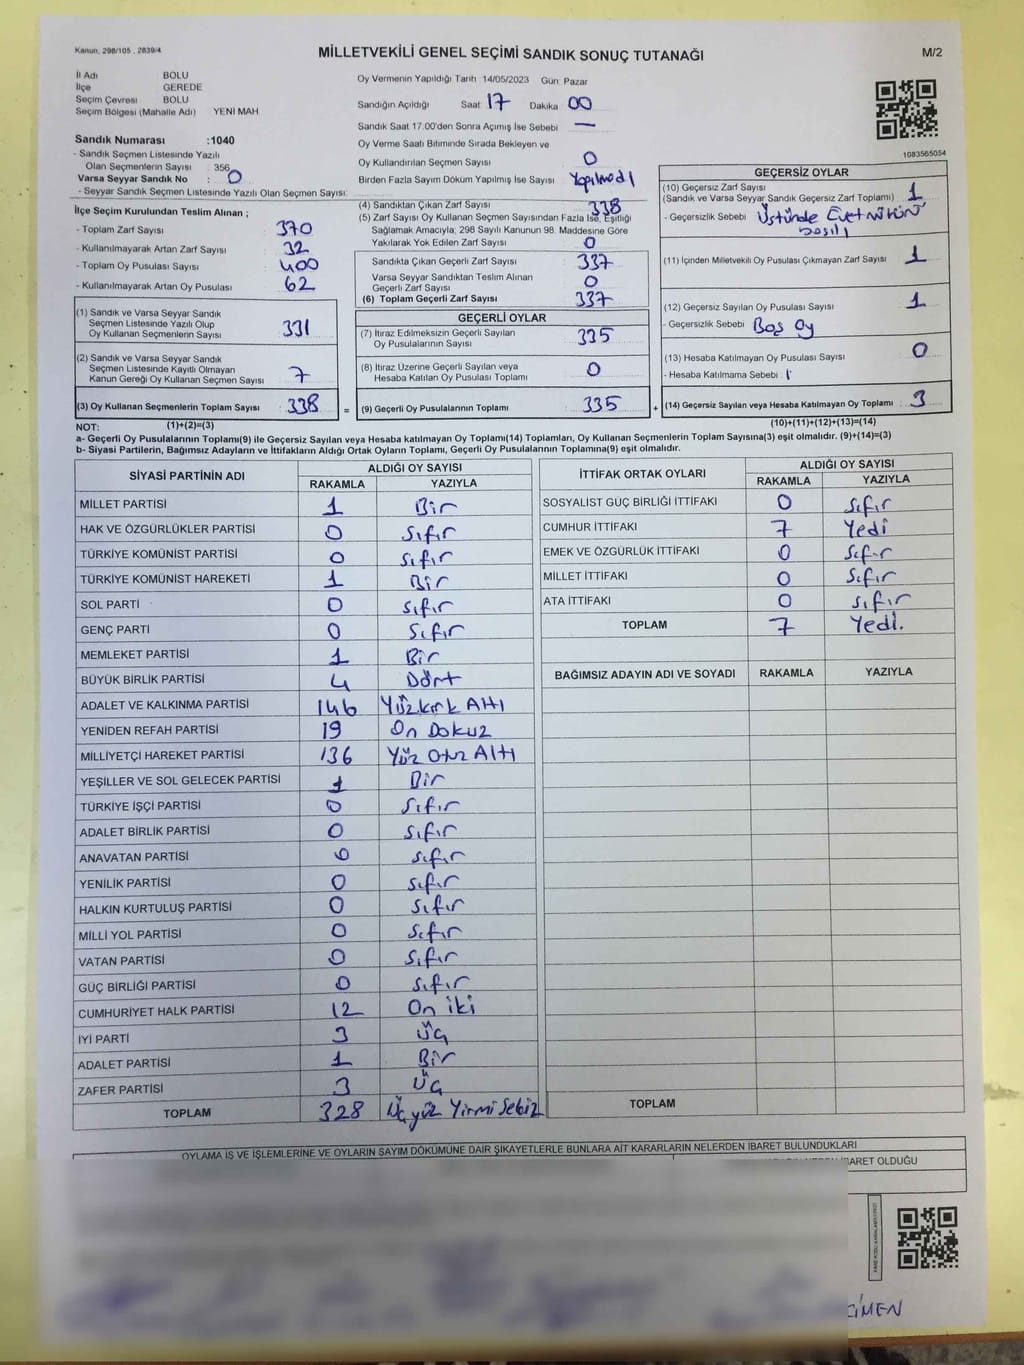 Kanun, 298/105 , 2839/4
MİLLETVEKİLİ GENEL SEÇİMİ SANDIK SONUÇ TUTANAĞI
M/2
İl Adı BOLU
İlçe GEREDE
Seçim Çevresi BOLU
Seçim Bölgesi (Mahalle Adı) YENİ MAH
Sandık Numarası :1040
- Sandık Seçmen Listesinde Yazılı
Olan Seçmenlerin Sayısı : 356
Varsa Seyyar Sandık No : 0
- Seyyar Sandık Seçmen Listesinde Yazılı Olan Seçmen Sayısı:
Oy Vermenin Yapıldığı Tarih 14/05/2023 Gün: Pazar
Sandığın Açıldığı Saat 17 Dakika 00
Sandık Saat 17:00'den Sonra Açımış İse Sebebi —
Oy Verme Saati Bitiminde Sırada Bekleyen ve
Oy Kullandırılan Seçmen Sayısı 0
Birden Fazla Sayım Döküm Yapılmış İse Sayısı Yapılmadı
1083565054
İlçe Seçim Kurulundan Teslim Alınan ;
- Toplam Zarf Sayısı 370
- Kullanılmayarak Artan Zarf Sayısı 32
- Toplam Oy Pusulası Sayısı 400
- Kullanılmayarak Artan Oy Pusulası 62
(1) Sandık ve Varsa Seyyar Sandık
Seçmen Listesinde Yazılı Olup
Oy Kullanan Seçmenlerin Sayısı 331
(2) Sandık ve Varsa Seyyar Sandık
Seçmen Listesinde Kayıtlı Olmayan
Kanun Gereği Oy Kullanan Seçmen Sayısı 7
(3) Oy Kullanan Seçmenlerin Toplam Sayısı : 338 =
(1)+(2)=(3)
(4) Sandıktan Çıkan Zarf Sayısı 338
(5) Zarf Sayısı Oy Kullanan Seçmen Sayısından Fazla İse, Eşitliği
Sağlamak Amacıyla; 298 Sayılı Kanunun 98. Maddesine Göre
Yakılarak Yok Edilen Zarf Sayısı 0
Sandıkta Çıkan Geçerli Zarf Sayısı 337
Varsa Seyyar Sandıktan Teslim Alınan
Geçerli Zarf Sayısı 0
(6) Toplam Geçerli Zarf Sayısı 337
GEÇERLİ OYLAR
(7) İtiraz Edilmeksizin Geçerli Sayılan
Oy Pusulalarının Sayısı 335
(8) İtiraz Üzerine Geçerli Sayılan veya
Hesaba Katılan Oy Pusulası Toplamı 0
(9) Geçerli Oy Pusulalarının Toplamı 335 +
GEÇERSİZ OYLAR
(10) Geçersiz Zarf Sayısı
(Sandık ve Varsa Seyyar Sandık Geçersiz Zarf Toplamı) 1
- Geçersizlik Sebebi Üstünde Evet Mührü
basılı
(11) İçinden Milletvekili Oy Pusulası Çıkmayan Zarf Sayısı 1
(12) Geçersiz Sayılan Oy Pusulası Sayısı 1
- Geçersizlik Sebebi Boş Oy
(13) Hesaba Katılmayan Oy Pusulası Sayısı 0
- Hesaba Katılmama Sebebi
(14) Geçersiz Sayılan veya Hesaba Katılmayan Oy Toplamı : 3
(10)+(11)+(12)+(13)=(14)
NOT:
a- Geçerli Oy Pusulalarının Toplamı(9) ile Geçersiz Sayılan veya Hesaba katılmayan Oy Toplamı(14) Toplamları, Oy Kullanan Seçmenlerin Toplam Sayısına(3) eşit olmalıdır. (9)+(14)=(3)
b- Siyasi Partilerin, Bağımsız Adayların ve İttifakların Aldığı Oyların Toplamı, Geçerli Oy Pusulalarının Toplamına(9) eşit olmalıdır.
SİYASİ PARTİNİN ADI ALDIĞI OY SAYISI
RAKAMLA YAZIYLA
MİLLET PARTİSİ 1 Bir
HAK VE ÖZGÜRLÜKLER PARTİSİ 0 Sıfır
TÜRKİYE KOMÜNİST PARTİSİ 0 Sıfır
TÜRKİYE KOMÜNİST HAREKETİ 1 Bir
SOL PARTİ 0 Sıfır
GENÇ PARTİ 0 Sıfır
MEMLEKET PARTİSİ 1 Bir
BÜYÜK BİRLİK PARTİSİ 4 Dört
ADALET VE KALKINMA PARTİSİ 146 Yüzkırk Altı
YENİDEN REFAH PARTİSİ 19 On Dokuz
MİLLİYETÇİ HAREKET PARTİSİ 136 Yüz Otuz Altı
YEŞİLLER VE SOL GELECEK PARTİSİ 1 Bir
TÜRKİYE İŞÇİ PARTİSİ 0 Sıfır
ADALET BİRLİK PARTİSİ 0 Sıfır
ANAVATAN PARTİSİ 0 Sıfır
YENİLİK PARTİSİ 0 Sıfır
HALKIN KURTULUŞ PARTİSİ 0 Sıfır
MİLLİ YOL PARTİSİ 0 Sıfır
VATAN PARTİSİ 0 Sıfır
GÜÇ BİRLİĞİ PARTİSİ 0 Sıfır
CUMHURİYET HALK PARTİSİ 12 On iki
İYİ PARTİ 3 Üç
ADALET PARTİSİ 1 Bir
ZAFER PARTİSİ 3 Üç
TOPLAM 328 Üçyüz Yirmi Sekiz
İTTİFAK ORTAK OYLARI ALDIĞI OY SAYISI
RAKAMLA YAZIYLA
SOSYALİST GÜÇ BİRLİĞİ İTTİFAKI 0 Sıfır
CUMHUR İTTİFAKI 7 Yedi
EMEK VE ÖZGÜRLÜK İTTİFAKI 0 Sıfır
MİLLET İTTİFAKI 0 Sıfır
ATA İTTİFAKI 0 Sıfır
TOPLAM 7 Yedi.
BAĞIMSIZ ADAYIN ADI VE SOYADI RAKAMLA YAZIYLA
TOPLAM
OYLAMA İŞ VE İŞLEMLERİNE VE OYLARIN SAYIM DÖKÜMÜNE DAİR ŞİKAYETLERLE BUNLARA AİT KARARLARIN NELERDEN İBARET BULUNDUKLARI
BARET OLDUĞU